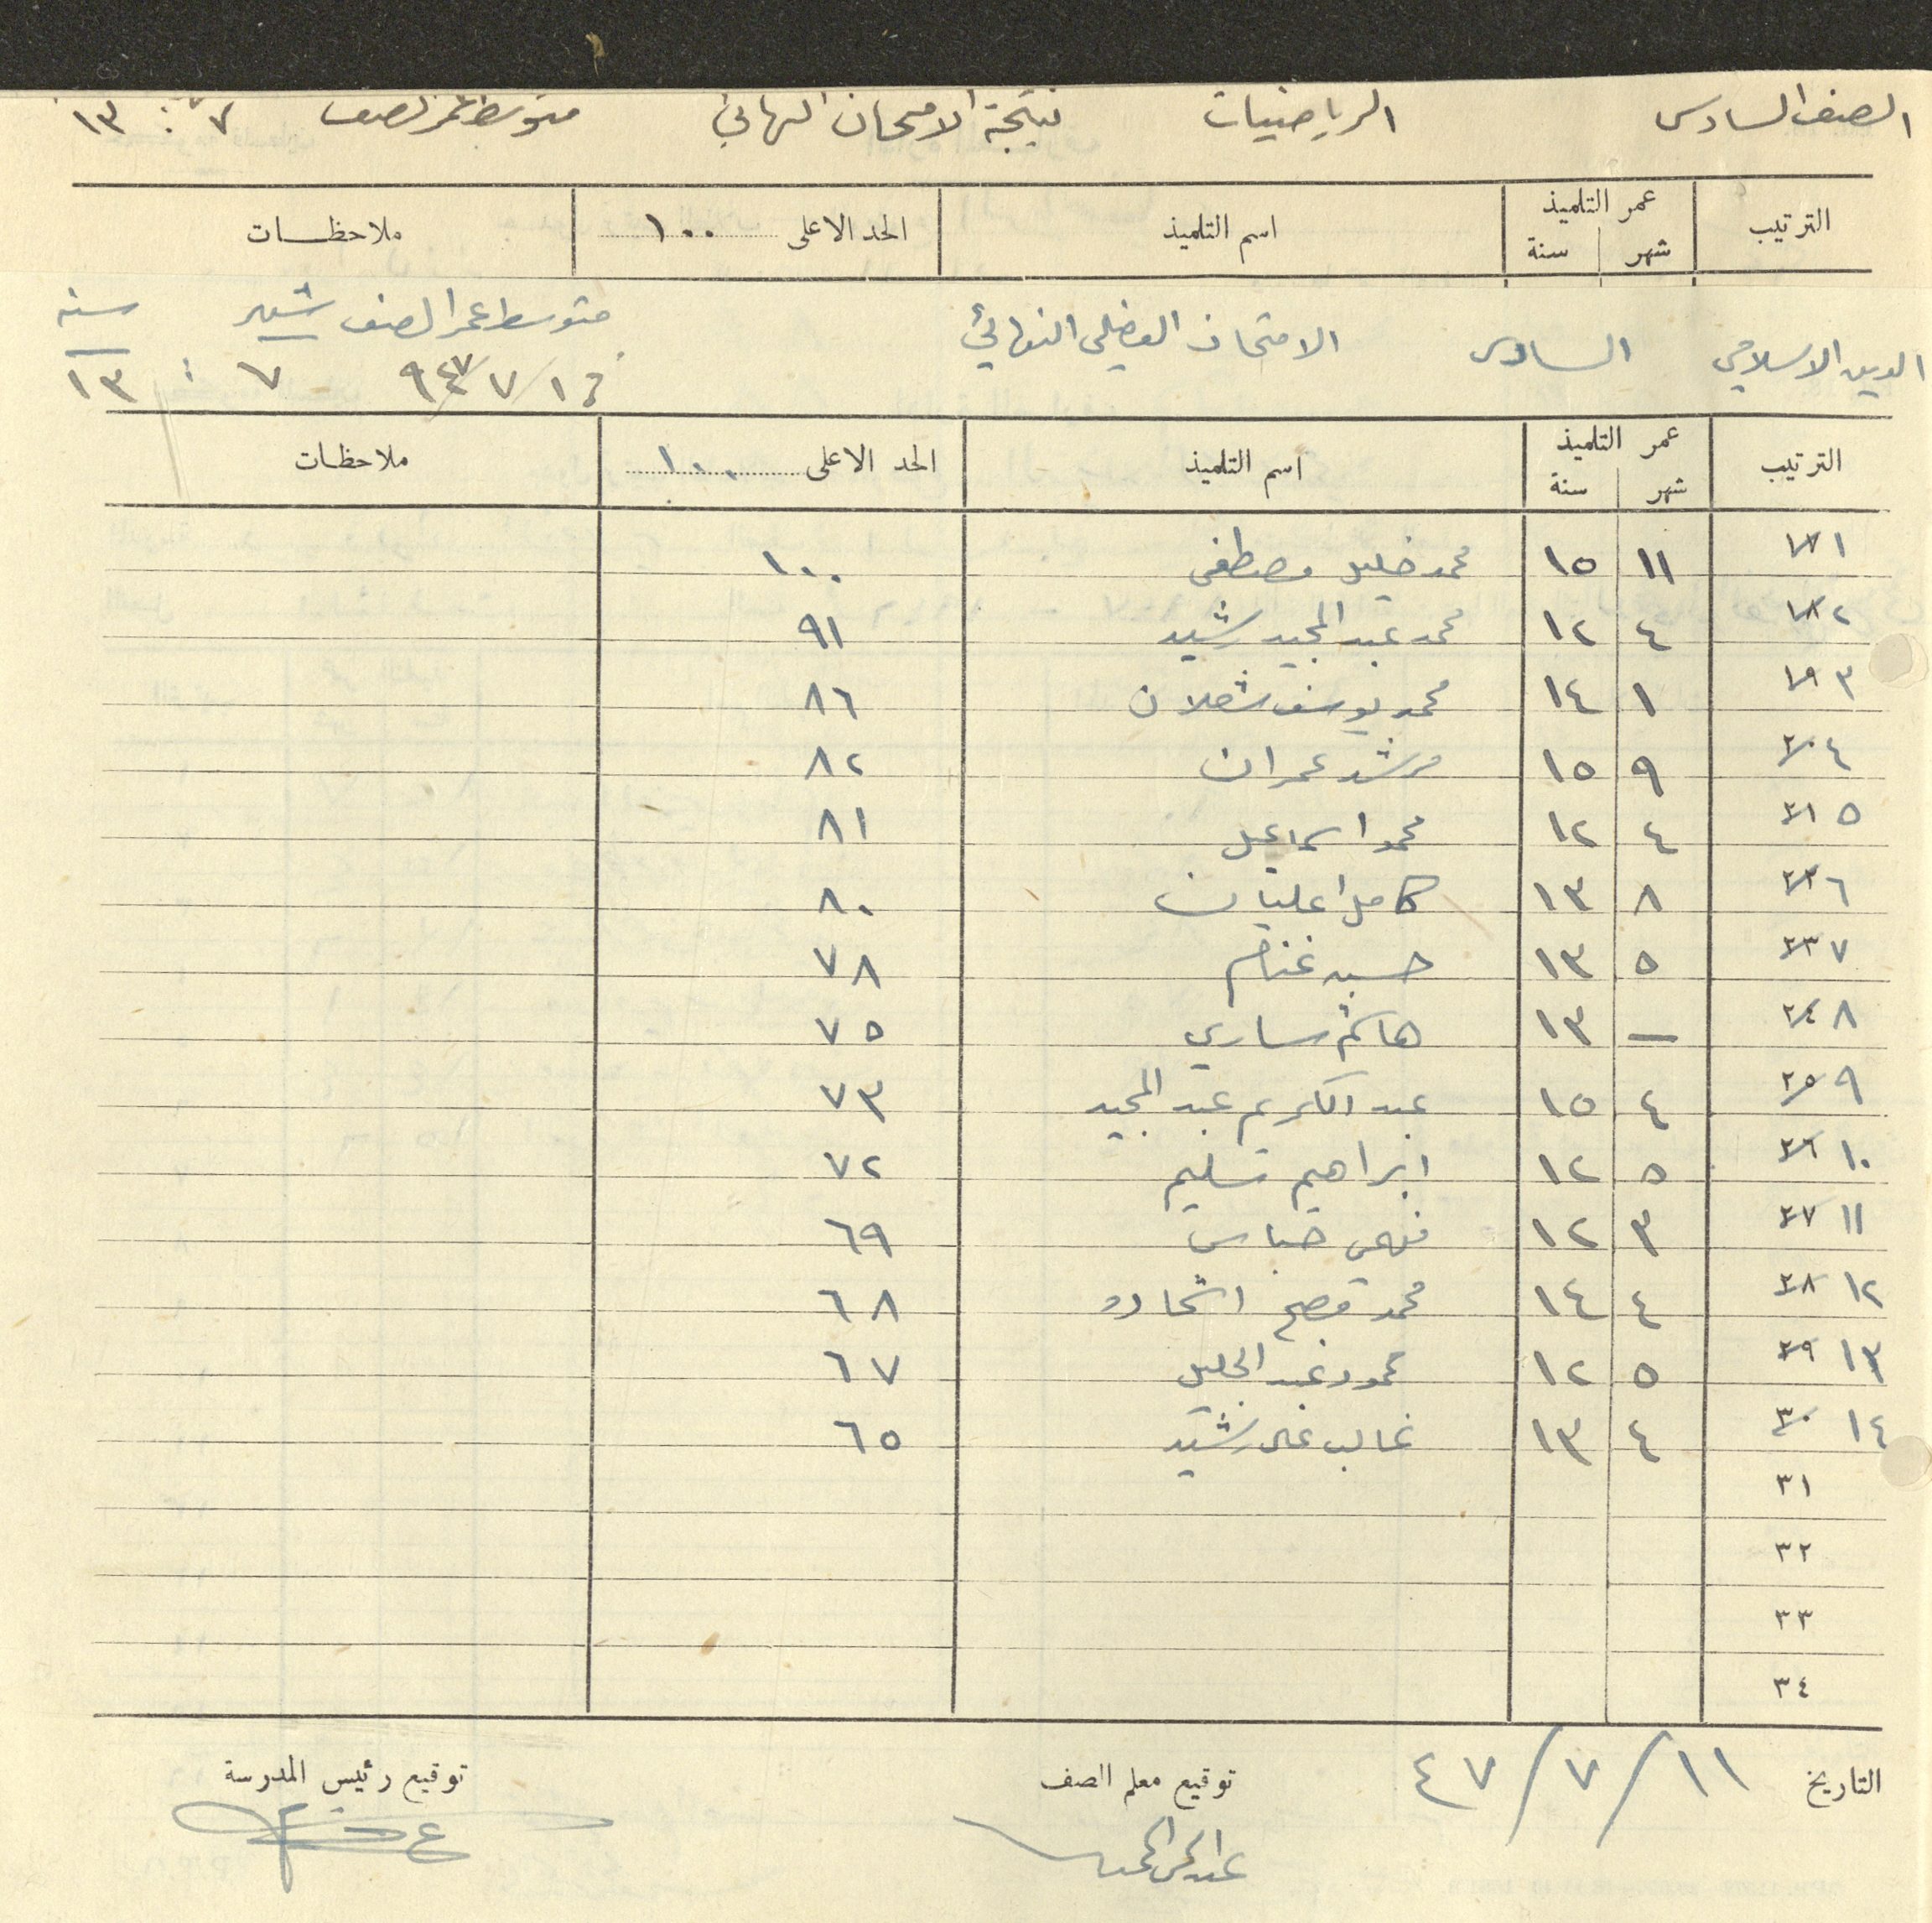 الصف السادس الرياضيات نتيجة الامتحان النهائي متوسط عمر الصف ٧ : ١٣
الترتيب عمر التلميذ اسم التلميذ الحد الاعلى ١٠٠ ملاحظات
شهر سنة
الدين الاسلامي السادس الامتحان الفصلي النهائي متوسط عمر الصف شهر سنه
٩٤٧/٧/١٢ ٧ : ١٣
الترتيب عمر التلميذ اسم التلميذ الحد الاعلى ١٠٠ ملاحظات
شهر سنة
١ ١٧ ١١ ١٥ محمد خليل مصطفى ١٠٠
٢ ١٨ ٤ ١٢ محمد عبد المجيد رشيد ٩١
٣ ١٩ ١ ١٤ محمد يوسف شعلان ٨٦
٤ ٢٠ ٩ ١٥ مرشد عمران ٨٢
٥ ٢١ ٤ ١٢ محمد اسماعيل ٨١
٦ ٢٢ ٨ ١٣ كامل اعليان ٨٠
٧ ٢٣ ٥ ١٣ حسين غنام ٧٨
٨ ٢٤ — ١٣ هاشم ساري ٧٥
٩ ٢٥ ٤ ١٥ عبد الكريم عبد المجيد ٧٣
١٠ ٢٦ ٥ ١٢ ابراهيم سليم ٧٢
١١ ٢٧ ٣ ١٢ فهمي عباس ٦٩
١٢ ٢٨ ٤ ١٤ محمد اشحاده ٦٨
١٣ ٢٩ ٥ ١٢ محمود عبد الجليل ٦٧
١٤ ٣٠ ٤ ١٣ غالب علي رشيد ٦٥
٣١
٣٢
٣٣
٣٤
التاريخ ١١/٧/٤٧ توقيع معلم الصف توقيع رئيس المدرسة